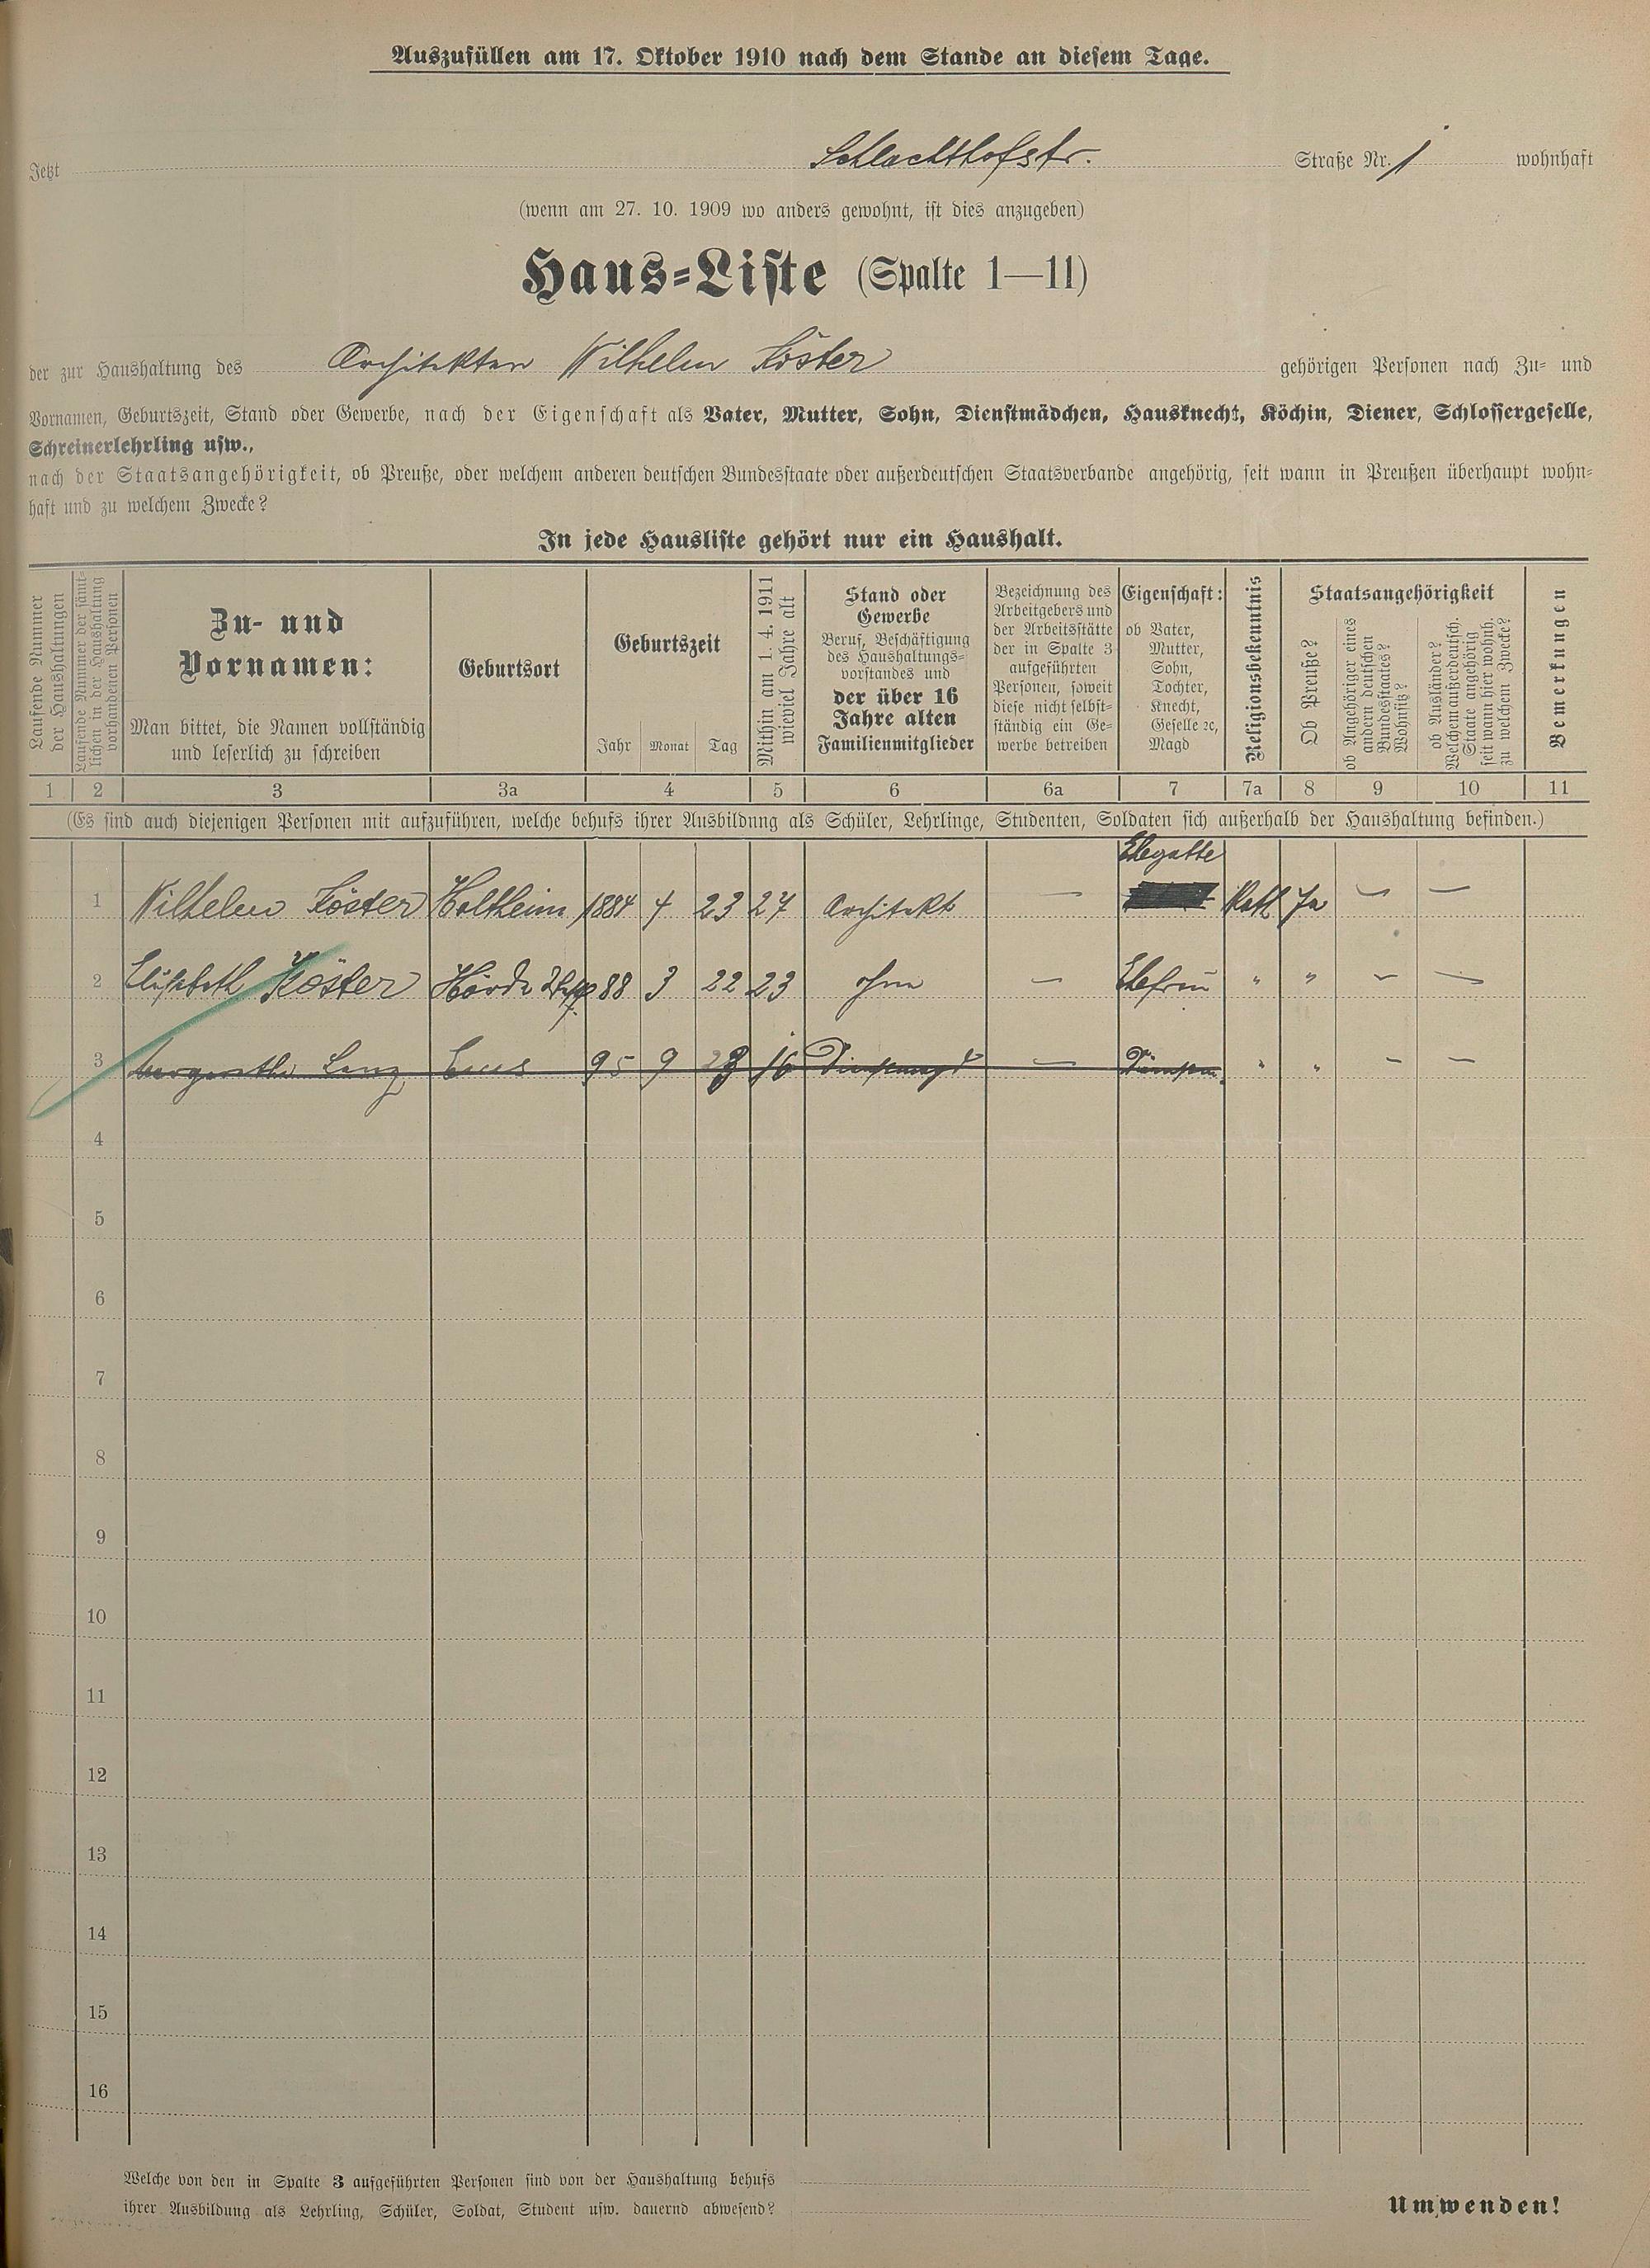 Auszufüllen am 17. Oktober 1910 nach dem Stande an diesem Tage.
Jetzt Schlachthofstr. Straße Nr. 1 wohnhaft
(wenn am 27. 10. 1909 wo anders gewohnt, ist dies anzugeben)
Haus-Liste (Spalte 1—11)
der zur Haushaltung des Architekten Wilhelm Köster gehörigen Personen nach Zu- und
Vornamen, Geburtszeit, Stand oder Gewerbe, nach der Eigenschaft als Vater, Mutter, Sohn, Dienstmädchen, Hausknecht, Köchin, Diener, Schlossergeselle,
Schreinerlehrling usw.,
nach der Staatsangehörigkeit, ob Preuße, oder welchem anderen deutschen Bundesstaate oder außerdeutschen Staatsverbande angehörig, seit wann in Preußen überhaupt wohn-
haft und zu welchem Zwecke?
In jede Hausliste gehört nur ein Haushalt.
Laufende Nummer
der Haushaltungen
Laufende Nummer der sämt-
lichen in der Haushaltung
vorhandenen Personen
Zu- und
Vornamen:
Man bittet, die Namen vollständig
und leserlich zu schreiben
Geburtsort
Geburtszeit
Jahr Monat Tag
Mithin am 1. 4. 1911
wieviel Jahre alt
Stand oder
Gewerbe
Beruf, Beschäftigung
des Haushaltungs-
vorstandes und
der über 16
Jahre alten
Familienmitglieder
Bezeichnung des
Arbeitgebers und
der Arbeitsstätte
der in Spalte 3
aufgeführten
Personen, soweit
diese nicht selbst-
ständig ein Ge-
werbe betreiben
Eigenschaft:
ob Vater,
Mutter,
Sohn,
Tochter,
Knecht,
Geselle ec,
Magd
Religionsbekenntnis
Staatsangehörigkeit
Ob Preuße?
ob Angehöriger eines
andern deutschen
Bundesstaates?
Wohnsitz?
ob Ausländer?
Welchem außerdeutsch.
Staate angehörig
seit wann hier wohnh.
zu welchem Zwecke?
Bemerkungen
1 2 3 3a 4 5 6 6a 7 7a 8 9 10 11
(Es sind auch diejenigen Personen mit aufzuführen, welche behufs ihrer Ausbildung als Schüler, Lehrlinge, Studenten, Soldaten sich außerhalb der Haushaltung befinden.)
Ehegatte
1 Wilhelm Köster Holtheim 1884 4 23 27 Architekt — Kath Ja — —
2 Elisabeth Köster Hörde 88 3 22 23 ohne — Ehefrau " " — —
3 Lenz Ems 95 9 16 Dienstmagd — " " — —
4
5
6
7
8
9
10
11
12
13
14
15
16
Welche von den in Spalte 3 aufgeführten Personen sind von der Haushaltung behufs
ihrer Ausbildung als Lehrling, Schüler, Soldat, Student usw. dauernd abwesend?
Umwenden!